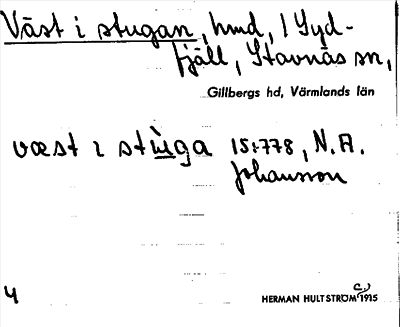 Väst i stugan, hmd, 1 Syd-
fjäll, Stavnäs sn,
Gillbergs hd, Värmlands län
væst ı stùga 15:778, N.A.
Johansson
4
HERMAN HULTSTRÖM c.) 1915